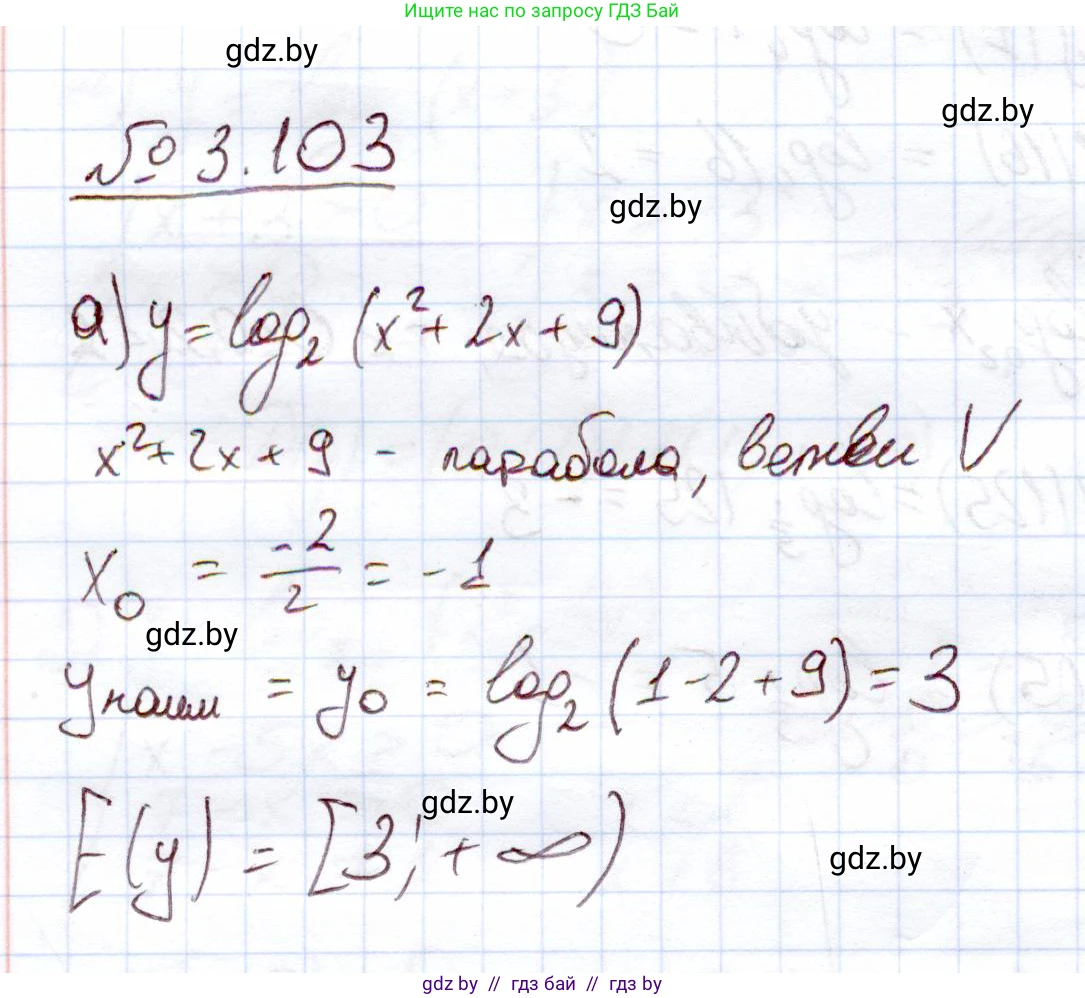 Ищите нас по запросу ГДЗ Бай
gdz.by
gdz.by
№ 3.103
gdz.by
а) y = log₂ (x² + 2x + 9)
x² + 2x + 9 - парабола, ветви V
x₀ = -2/2 = -1
gdz.by
yнаим = y₀ = log₂ (1 - 2 + 9) = 3
gdz.by
E(y) = [3; +∞)
gdz.by
gdz.by // гдз бай // gdz.by